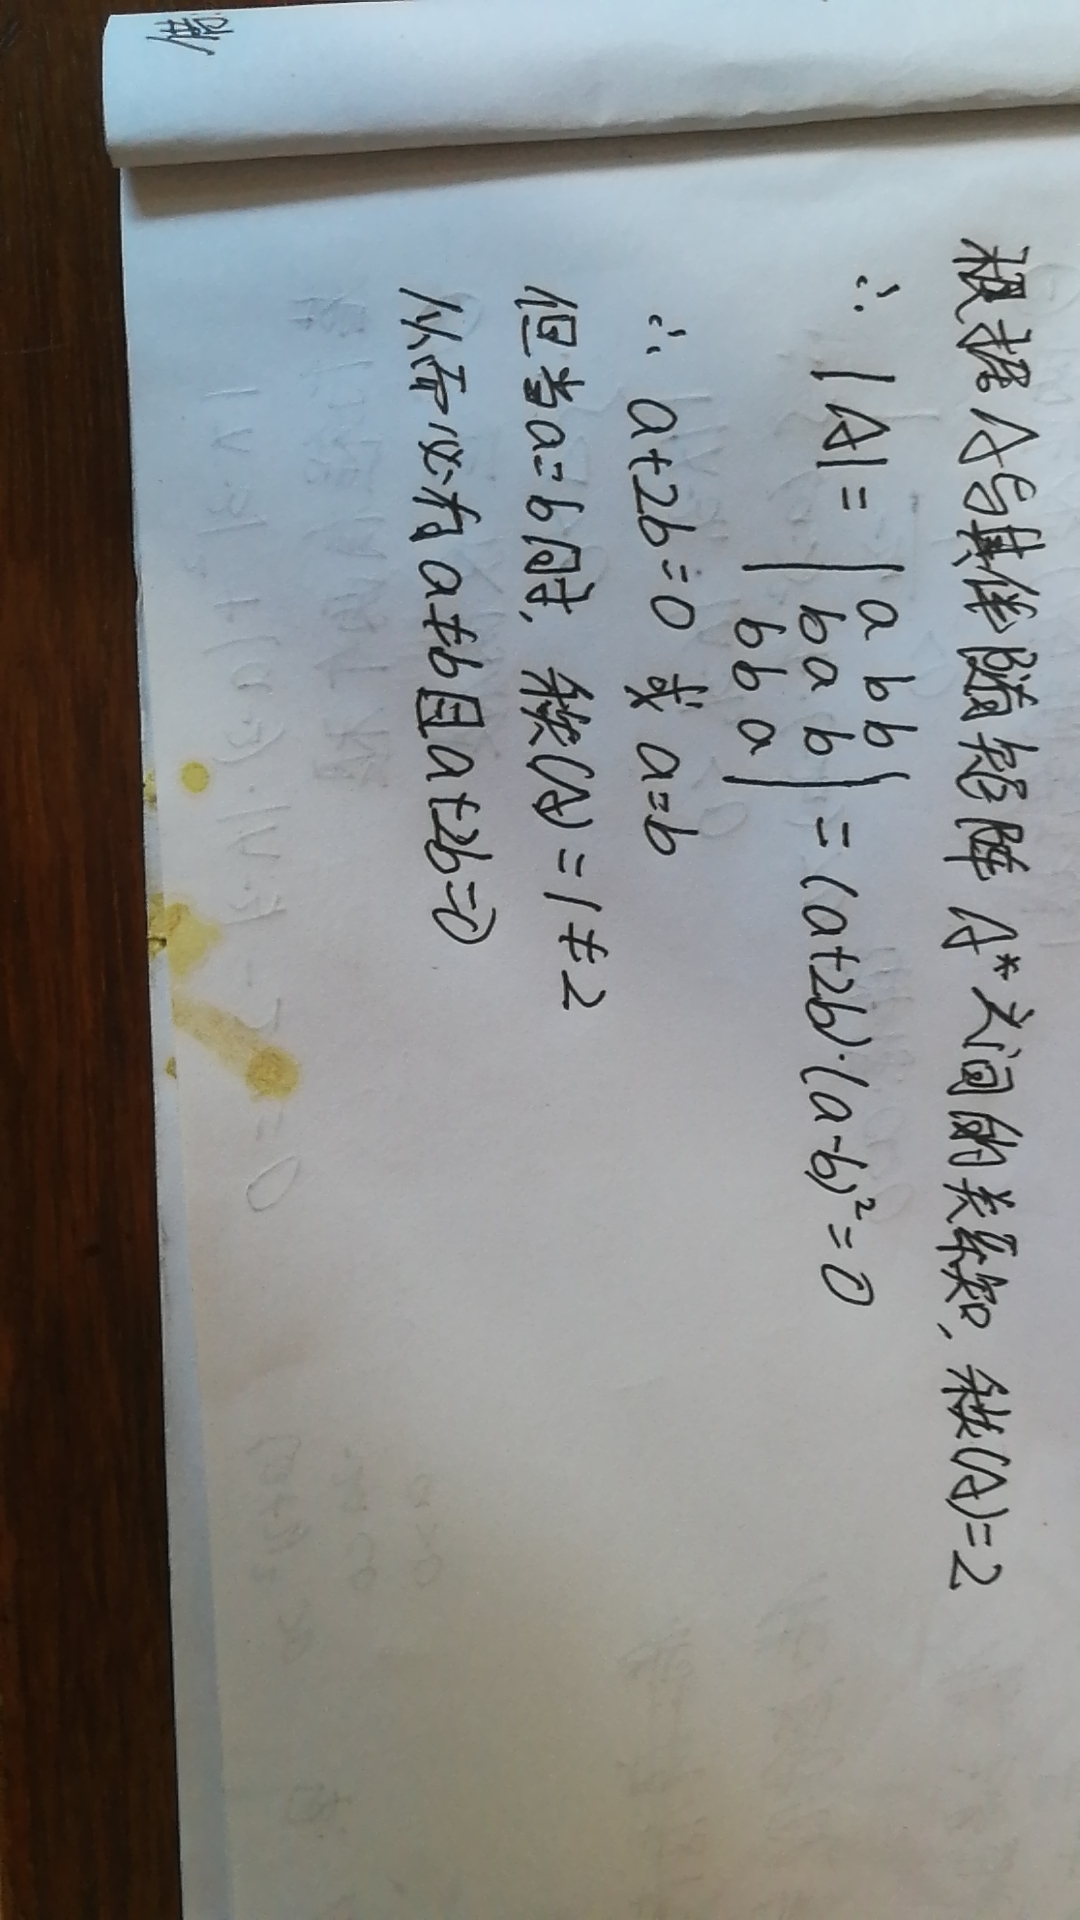 根据A与其伴随矩阵A*之间的关系知,秩(A)=2
∴ |A| = | a b b
b a b
b b a | = (a+2b)·(a-b)²=0
∴ a+2b=0 或 a=b
但当a=b时, 秩(A)=1≠2
从而必有a≠b且a+2b=0